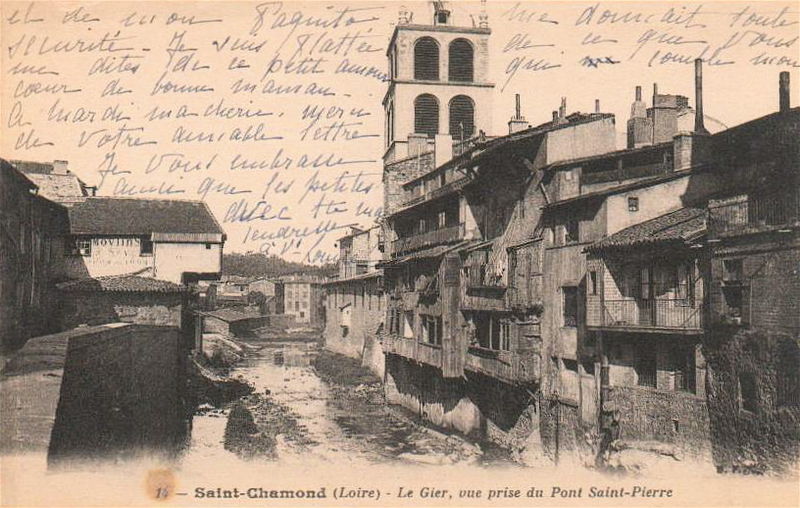 et de mon Paquito
sécurité. Je suis flattée
me dites de ce petit amour
cœur de bonne maman.
A mardi ma cherie. merci
de votre aimable lettre
Je vous embrasse
ainsi que les petites
avec tte ma
tendresse
à Vous
me donnait toute
de ce que vous
qui me comble mon
MOULIN
14 — Saint-Chamond (Loire) - Le Gier, vue prise du Pont Saint-Pierre